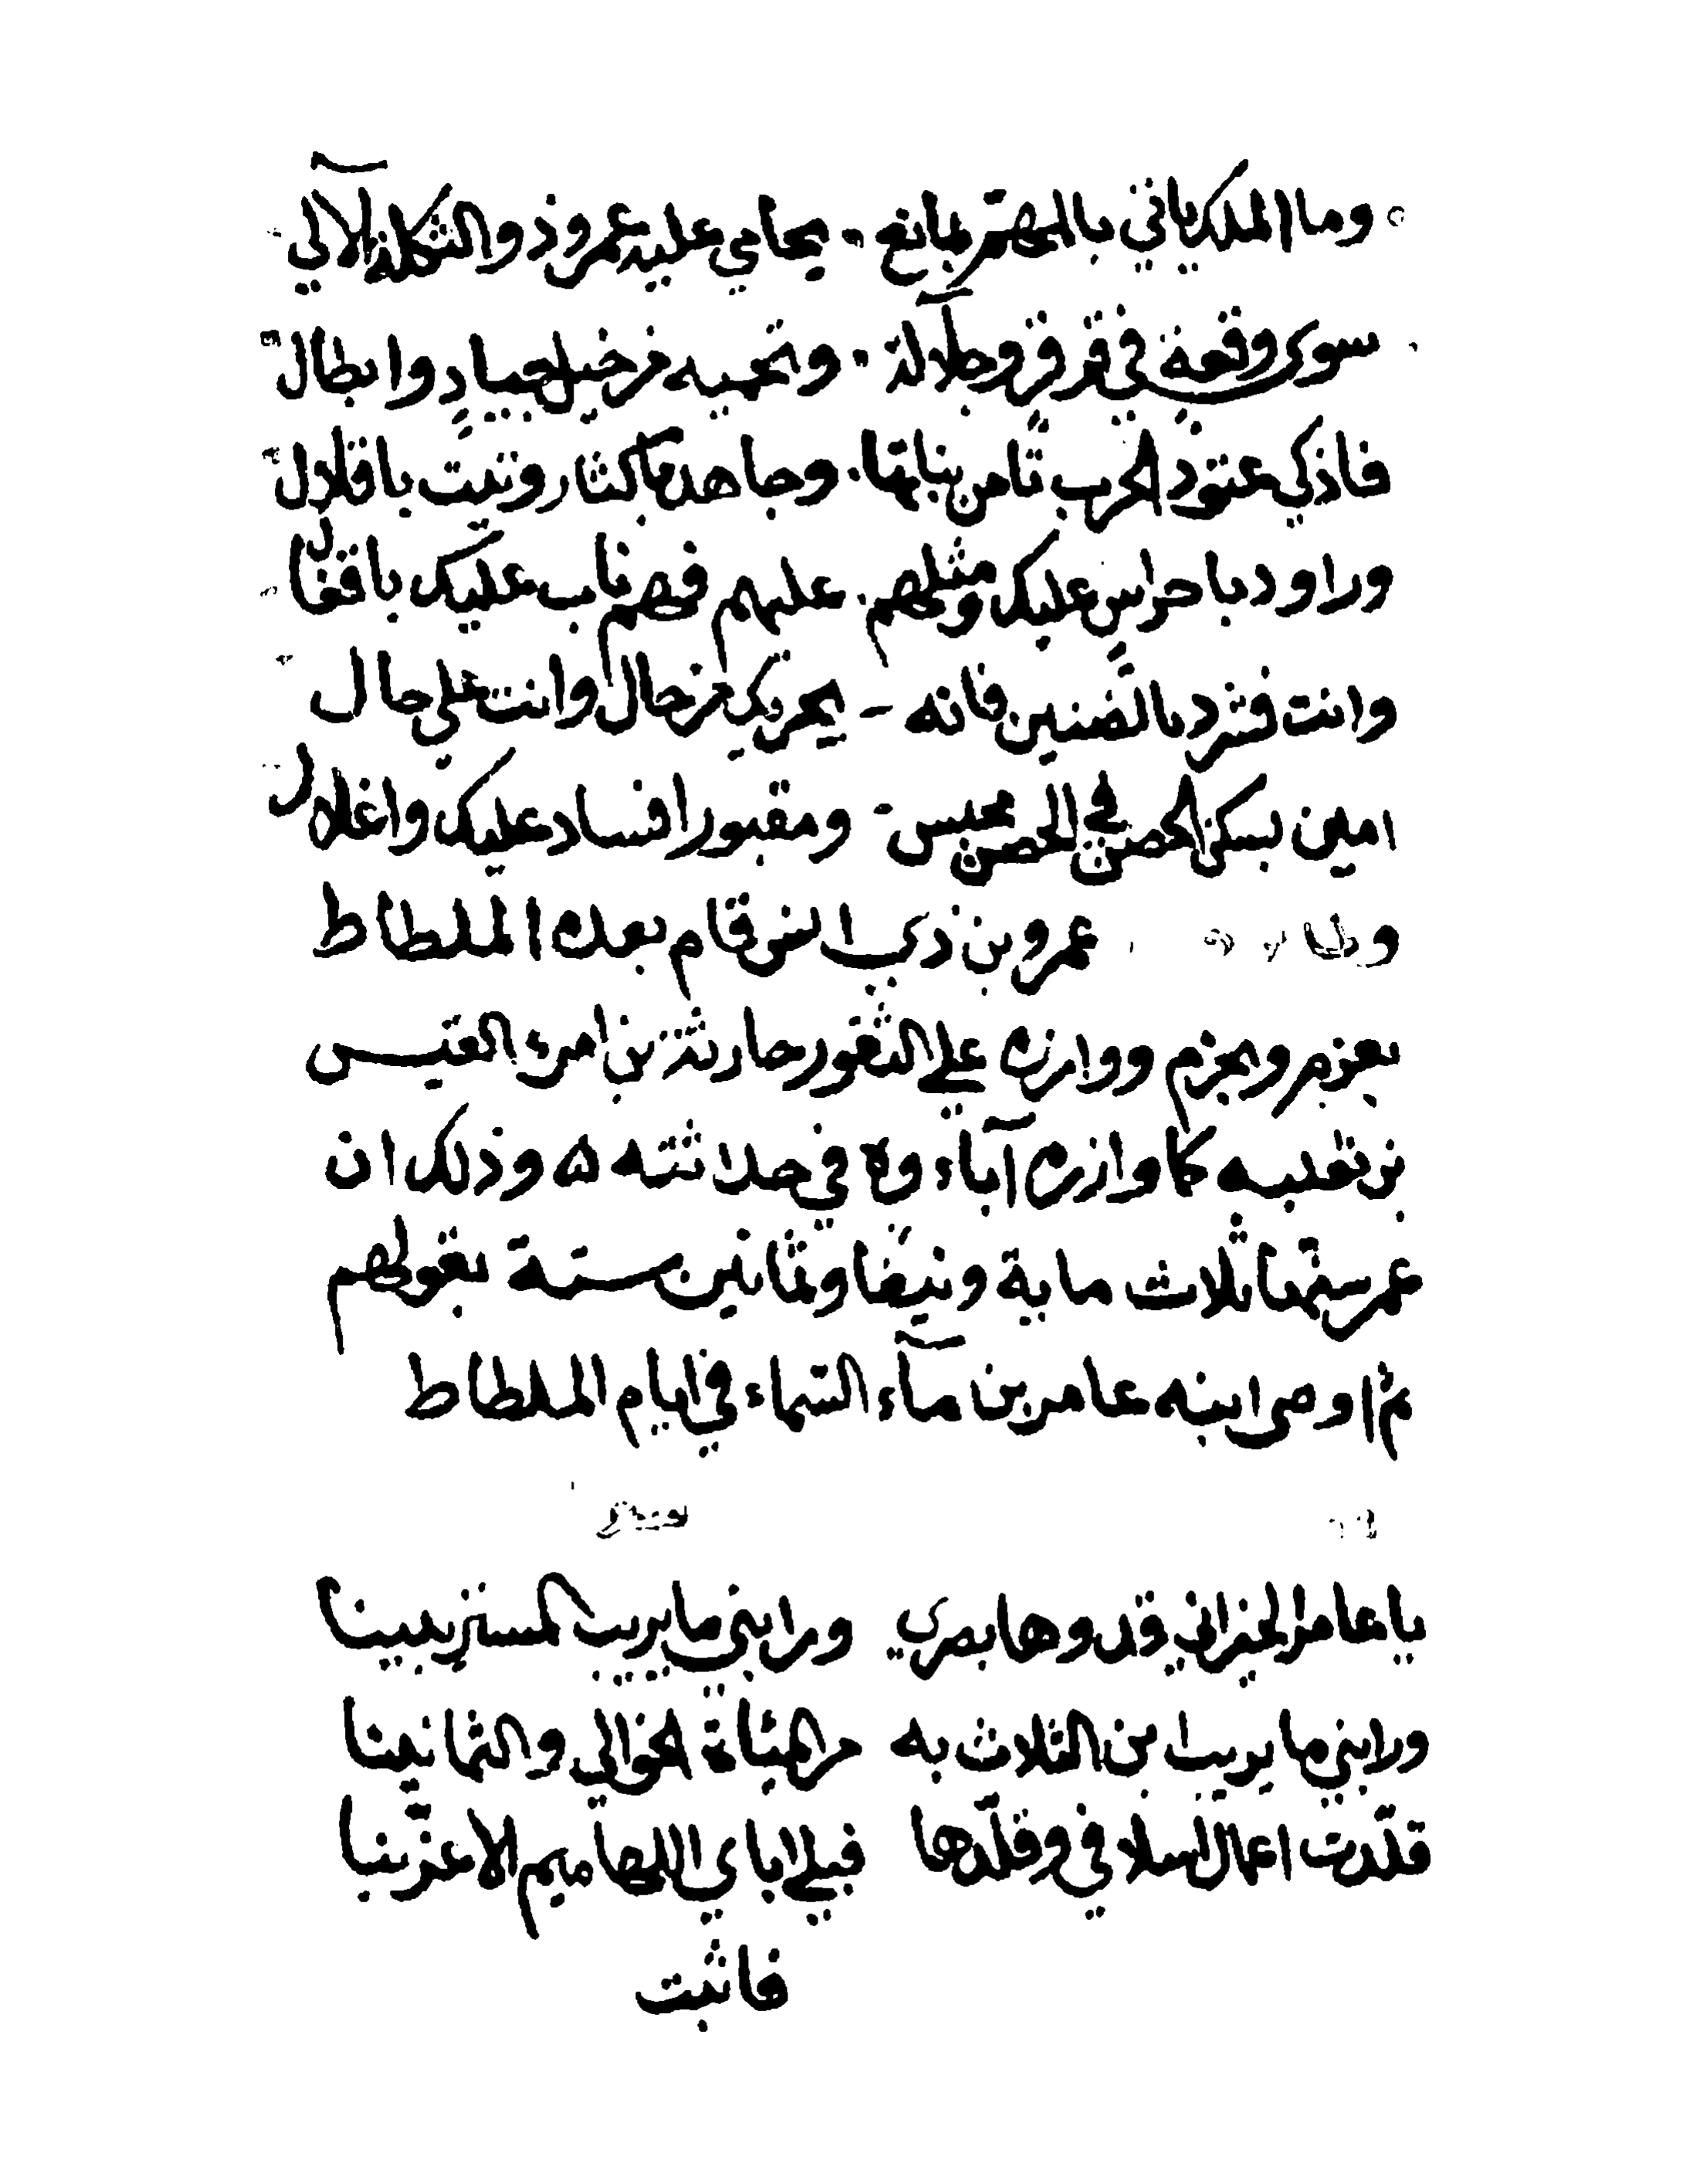 وما الملك ياتي باالمهتر بمانع · يحامي عليه عمرو ذو الشكلة الآلي
سوى وقعة في قرقر وطلآلة · وتحميه من خيل جياد وابطال
فاذكي عتود الحرب ثامن بناتها · وجاهد باكثار وتنت باقلال
وراود باحراس عليك ومثلهم · عليهم فهم ناب عليك باقفال
وانت فشرد بالضنين فانه - يحربك من حال وانت على حال
امين بسكن الحصن في الحصن محبس - ومقبور افساد عليك واغلال
ولما عمرو بن ذي انس قام بعده الملطاط
بعزم وبحزم ووازره على الثغور حارثة بن امرئ القيس
بن ثعلبه كما وازره آباءوه في حداثته ۵ وذلك ان
عمر ستهما ثلاث ماية ونيفا وثمانين سنة بقولهم
ثم اوصى ابنه عامر بن مآء السماء في ايام الملطاط
يا عامر الخير اني قد وها بصري ورابني ما يريب المستزيبينا
ورابني ما يريب ابن الثلاث به من المئاة الخوالي والثمانينا
قلدت اعمال اسلافي وقلدها قبلي اباي اللهاميم الاعزينا
فاثبت